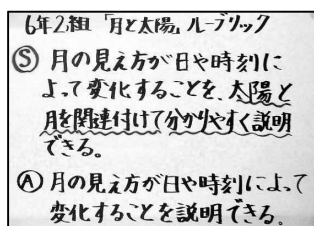 6年2組 「月と太陽」ルーブリック
Ⓢ 月の見え方が日や時刻に
よって変化することを、太陽と
月を関連付けて分かりやすく説明
できる。
Ⓐ 月の見え方が日や時刻によって
変化することを説明できる。